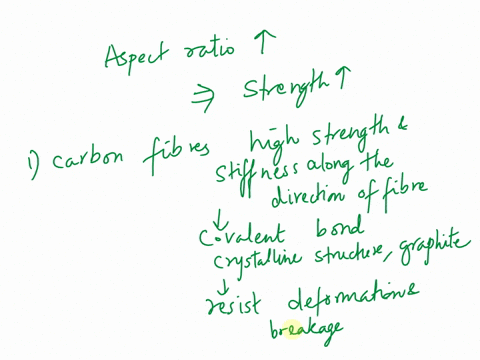 Aspect ratio ↑
⇒ Strength ↑
1) carbon fibres high strength &
stiffness along the
direction of fibre
↓
Covalent bond
crystalline structure, graphite
↓
resist deformation &
breakage